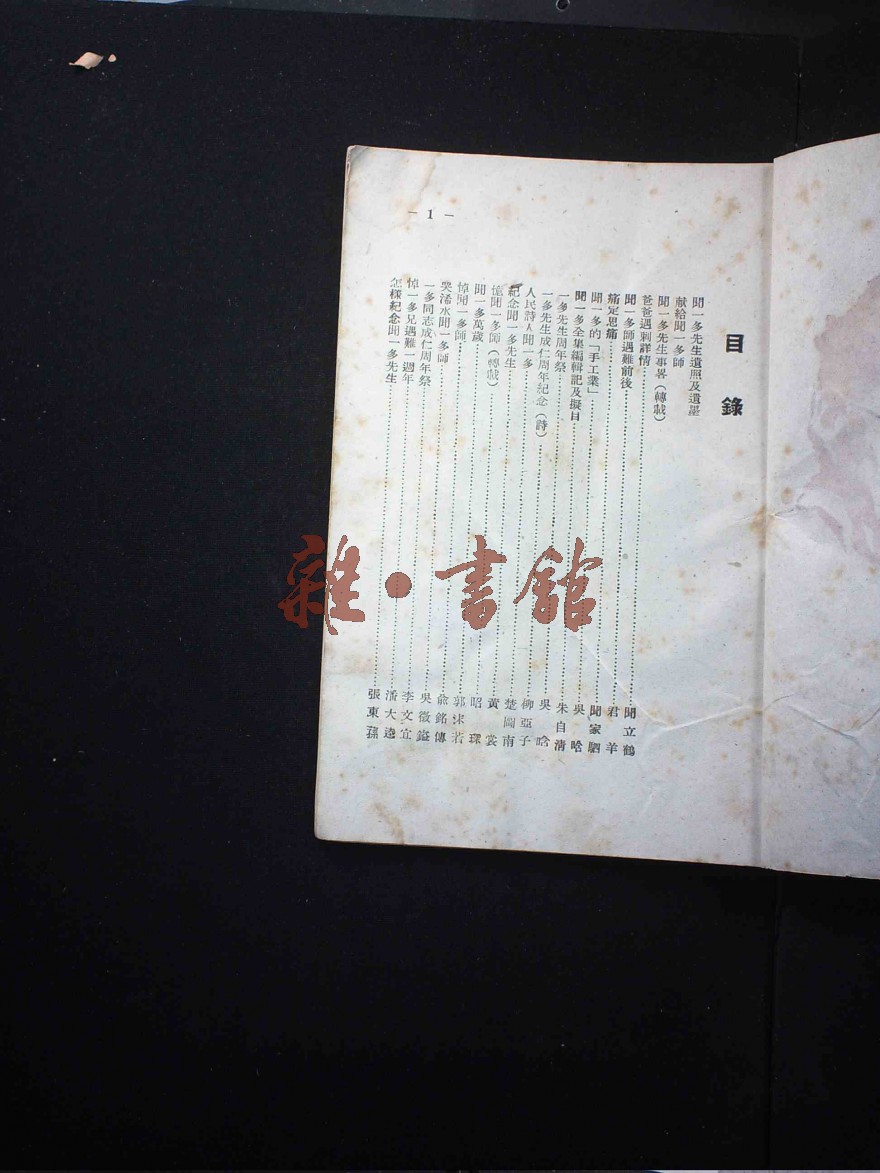 目錄
聞一多先生遺照及遺墨
献給聞一多師
聞一多先生事畧(轉載)
爸爸遇刺詳情……聞立鶴
聞一多師遇難前後……君羊
痛定思痛……聞家駟
聞一多的「手工業」……吳晗
聞一多全集編輯記及擬目……朱自清
一多先生周年祭……吳晗
一多先生成仁周年紀念(詩)……柳亞子
人民詩人聞一多……楚圖南
紀念聞一多先生……黃裳
憶聞一多師(轉載)……昭琛
聞一多萬歲……郭沫若
悼聞一多師……俞銘傳
哭浠水聞一多師……吳徵鎰
一多同志成仁周年祭……李文宜
悼一多兄遇難一週年……潘大逵
怎樣紀念聞一多先生……張東蓀
— 1 —
雜·書館